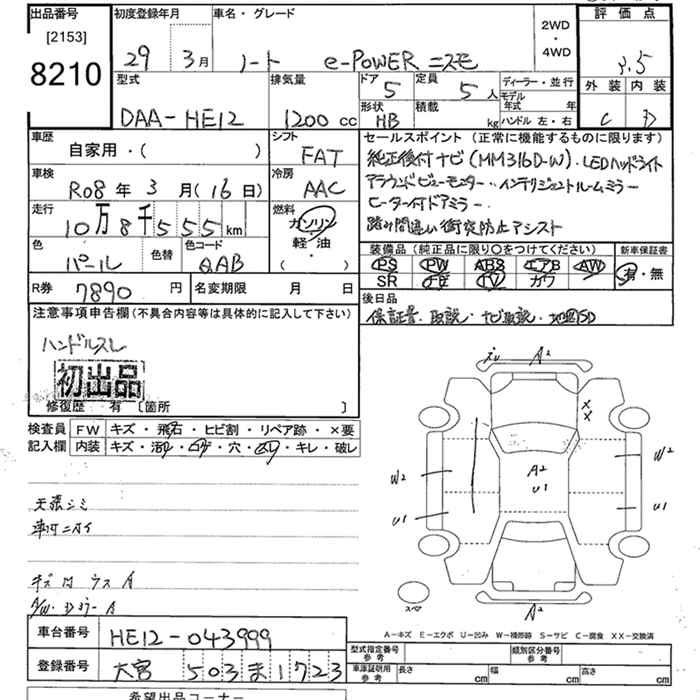 出品番号
[2153]
8210
初度登録年月
29 3月
車名・グレード
ノート e-POWER ニスモ
2WD
・
4WD
評価点
3.5
外装 内装
C D
型式
DAA-HE12
排気量
1200 cc
ドア
5
定員
5 人
形状
HB
積載
kg
ディーラー・並行
モデル年式 年
ハンドル 左・右
車歴
自家用・( )
シフト
FAT
車検
R08年 3月(16日)
冷房
AAC
走行
10万8千555km
燃料
ガソリン
軽油
( ・ )
色
パール
色替
色コード
QAB
R券
7890 円
名変期限 月 日
セールスポイント(正常に機能するものに限ります)
純正後付ナビ(MM316D-W)・LEDヘッドライト
アラウンドビューモニター・インテリジェントルームミラー
ヒーター付ドアミラー・
踏み間違い衝突防止アシスト
装備品(純正品に限り〇をつけてください)
新車保証書
PS PW ABS エアB AW
SR ナビ TV カワ
有・無
後日品
保証書・取説・ナビ取説・地図SD
注意事項申告欄(不具合内容等は具体的に記入して下さい)
ハンドルスレ
初出品
修復歴 有 〔箇所 〕
検査員記入欄
FW キズ・飛石・ヒビ割・リペア跡・×要
内装 キズ・汚れ・コゲ・穴・スリ・キレ・破レ
天張シミ
車内ニオイ
A2
XX
W2
A2
U1
W2
U1
U1
スペア
A2
A-キズ E-エクボ U-凹み W-補修跡 S-サビ C-腐食 XX-交換済
車台番号
HE12-043999
登録番号
大宮 503 ま 1723
型式指定番号
参考
類別区分番号
参考
車庫証明用
参考
長さ cm
幅 cm
高さ cm
希望出品コーナー